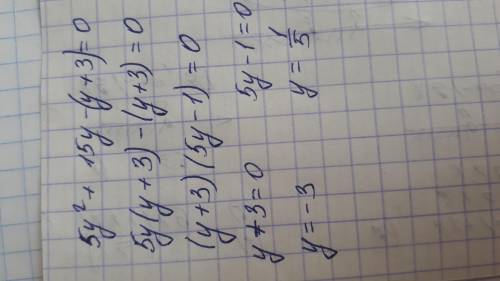 5y² + 15y - (y + 3) = 0
5y(y + 3) - (y + 3) = 0
(y + 3)(5y - 1) = 0
y + 3 = 0 5y - 1 = 0
y = -3 y = 1/5